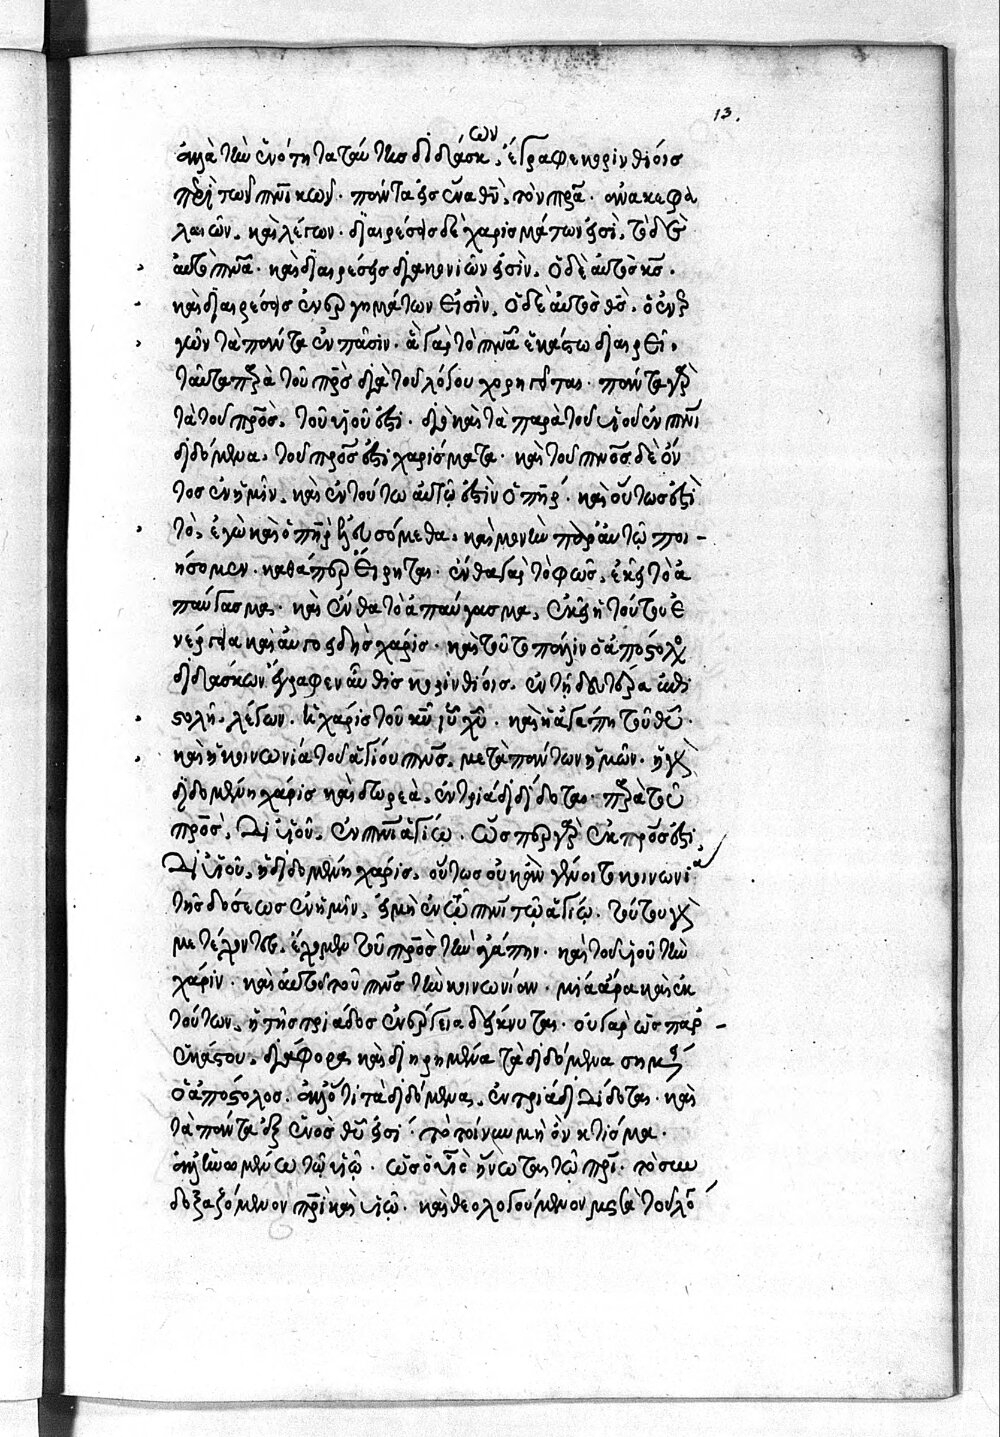 13.
ἀλλὰ τὴν ἑνότητα ταύτης διδάσκων. ἔγραφε κορινθίοις
περὶ τῶν πνικῶν. πάντα εἰς ἕνα θν, τὸν πρα. ἀνακεφα
λαιῶν. καὶ λέγων. διαιρέσεις δὲ χαρισμάτων εἰσὶ, τὸ δὲ
αὐτὸ πνα. καὶ διαιρέσεις διακονιῶν εἰσὶν. ὁ δὲ αὐτὸς κς.
καὶ διαιρέσεις ἐνεργημάτων εἰσὶν. ὁ δὲ αὐτὸς θς. ὁ ἐνερ
γῶν τὰ πάντα ἐν πᾶσιν. ἃ γὰρ τὸ πνα ἑκάστω διαιρεῖ.
ταῦτα παρὰ τοῦ πρς διὰ τοῦ λόγου χορηγεῖται. πάντα γὰρ
τὰ τοῦ προς, τοῦ υἱοῦ ἐστι. διὸ καὶ τὰ παρὰ τοῦ υἱοῦ ἐν πνι
διδόμενα, τοῦ προς ἐστι χαρίσματα. καὶ τοῦ πνος δὲ ὄν
τος ἐν ἡμῖν, καὶ ἐν τούτω αὐτῷ ἐστὶν ὁ πηρ. καὶ οὕτως ἐστὶ
τὸ, ἐγὼ καὶ ὁ πηρ ἐλευσόμεθα, καὶ μονὴν παρ' αὐτῷ ποι-
ήσομεν. καθάπερ εἴρηται. ἔνθα γὰρ τὸ φῶς, ἐκεῖ τὸ ἀ
παύγασμα. καὶ ἔνθα τὸ ἀπαύγασμα, ἐκεῖ ἡ τούτου ἐ
νέργεια καὶ αὐγοειδὴς χάρις. καὶ τοῦτο πάλιν ὁ ἀπόστολος
διδάσκων ἔγραφεν αὖθις κορινθίοις. ἐν τῇ δευτέρα ἐπι
στολῇ. λέγων. ἡ χάρις τοῦ κυ ιυ χυ. καὶ ἡ ἀγάπη τοῦ θυ.
καὶ ἡ κοινωνία τοῦ ἁγίου πνς. μετὰ πάντων ἡμῶν. ἡ γὰρ
διδομένη χάρις καὶ δωρεὰ, ἐν τριάδι δίδοται. παρὰ τοῦ
προς, δι' υἱοῦ, ἐν πνι ἁγίω. ὥσπερ γὰρ ἐκ προς ἐστι,
δι' υἱοῦ, ἡ διδομένη χάρις, οὕτως οὐκ ἂν γένοιτο κοινωνία
τῆς δόσεως ἐν ἡμῖν, εἰ μὴ ἐν τῷ πνι τῷ ἁγίῳ. τούτου γὰρ
μετέχοντες. ἔχομεν τοῦ προς τὴν ἀγάπην. καὶ τοῦ υἱοῦ τὴν
χάριν. καὶ αὐτοῦ τοῦ πνς τὴν κοινωνίαν. μία ἄρα καὶ ἐκ
τούτων, ἡ τῆς τριάδος ἐνέργεια δείκνυται. οὐ γὰρ ὡς παρ'-
ἑκάστου. διάφορα καὶ διηρημένα τὰ διδόμενα σημαίνει
ὁ ἀπόστολος. ἀλλ' ὅτι τὰ διδόμενα, ἐν τριάδι δίδοται. καὶ
τὰ πάντα ἐξ ἑνὸς θυ εἰσί. τὸ τοίνυν μὴ ὂν κτίσμα.
ἀλλ' ἡνωμένον τῷ υἱῷ. ὡς ὁ υἱὸς ἥνωται τῷ πρι. τὸ συν
δοξαζόμενον πρι καὶ υἱῷ. καὶ θεολογούμενον μετὰ τοῦ λό